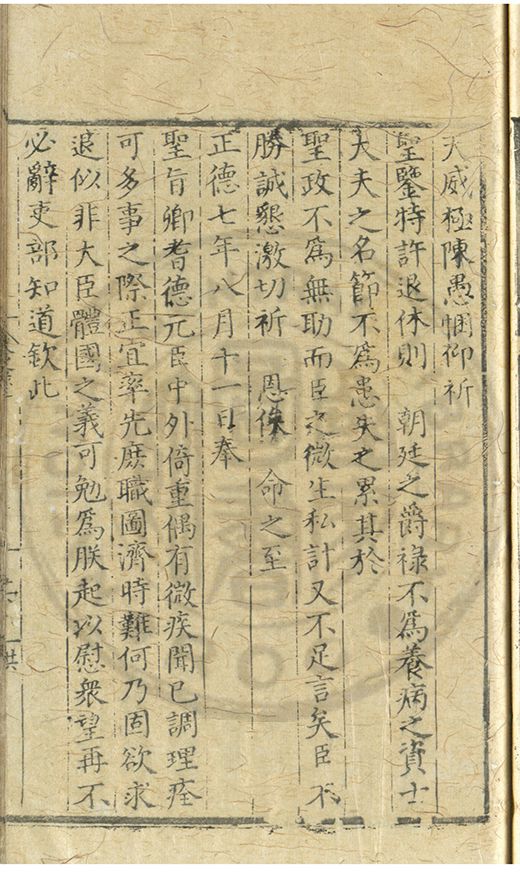 天威極陳愚悃仰祈
聖鑒特許退休則　朝廷之爵祿不爲養病之資士
大夫之名節不爲患失之累其於
聖政不爲無助而臣之微生私計又不足言矣臣不
勝誠懇激切祈　恩俟　命之至
正德七年八月十一日奉
聖旨卿耆德元臣中外倚重偶有微疾聞已調理痊
可多事之際正宜率先庶職圖濟時難何乃固欲求
退似非大臣體國之義可勉爲朕起以慰衆望再不
必辭吏部知道欽此